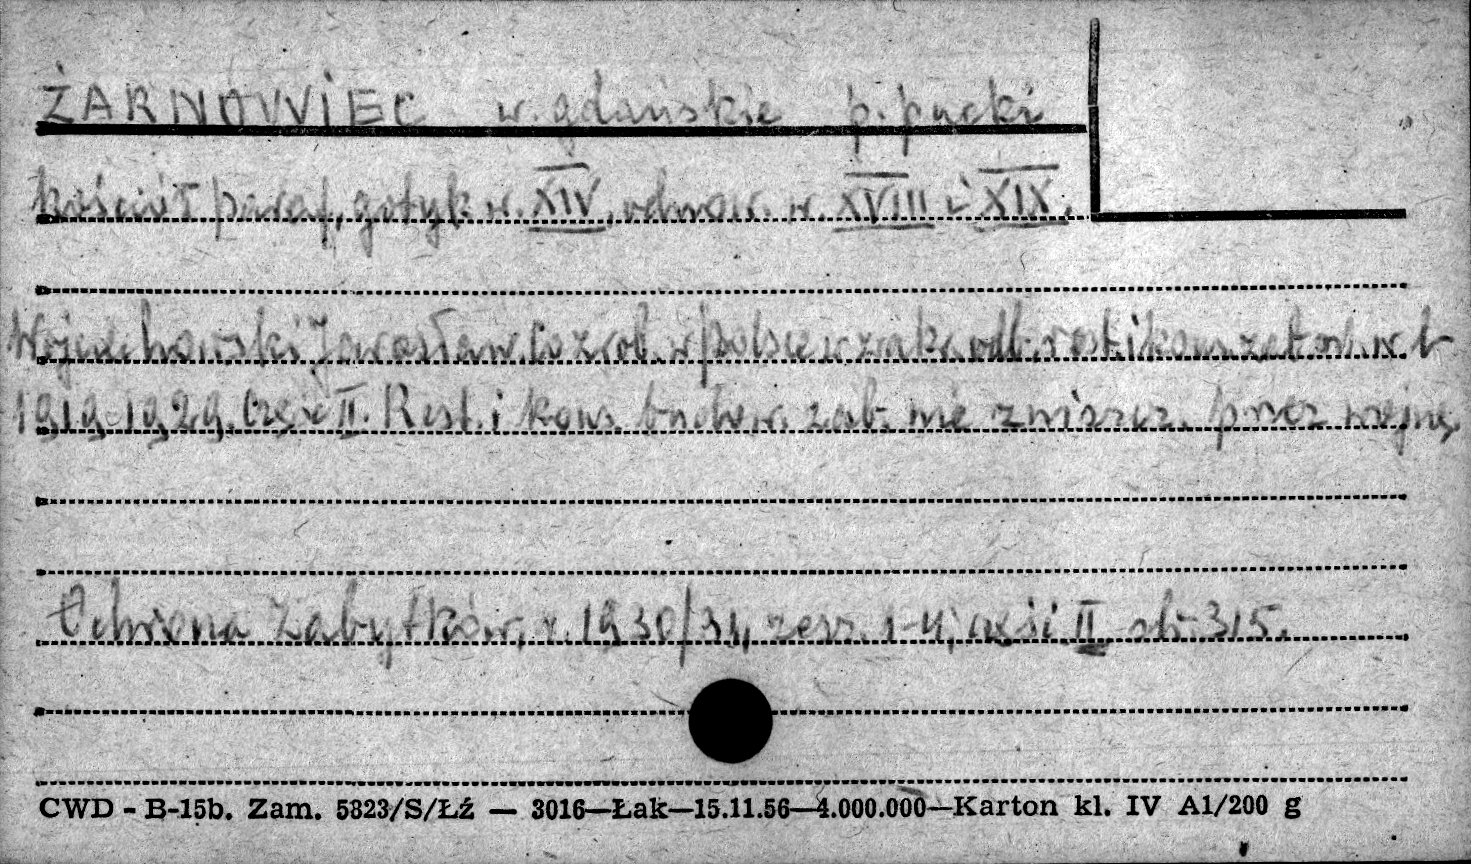 ŻARNOWIEC w. gdańskie p. pucki
kościół paraf. gotyk w. XIV, odnow. w. XVIII i XIX.
Wojciechowski Jarosław. Co zrob. w Polsce w zakr. odb. rest. i kons. zab. od. w l.
1919-1929. Część II. Rest. i kons. budow. zab. nie zniszcz. przez wojnę.
Ochrona Zabytków, r. 1930/31, zesz. 1-4, część II str. 315.
CWD - B-15b. Zam. 5823/S/Łź — 3016—Łak—15.11.56—4.000.000—Karton kl. IV A1/200 g